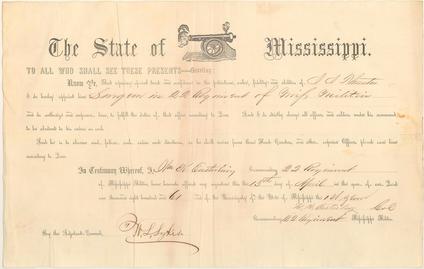 The State of Mississippi.
TO ALL WHO SHALL SEE THESE PRESENTS—Greeting:
Know Ye, That reposing special trust and confidence in the patriotism, valor, fidelity and abilities of
I do hereby appoint him Surgeon in 22 Regiment of Miss Militia
and do authorize and empower him, to fulfill the duties of that office according to Law. And I do strictly charge all officers and soldiers under his command
to be obedient to his orders.
And he is to observe and follow such orders and directions, as he shall receive from
according to Law.
In Testimony Whereof, I, Wm H Commanding 22 Regiment
of Mississippi Militia have hereunto affixed my signature this 15th day of April in the year of our Lord
one thousand eight hundred and 61 and of the Sovereignty of the State of Mississippi the 1st year
Col
Commanding 22 Regiment Mississippi Militia.
By the Adjutant General,